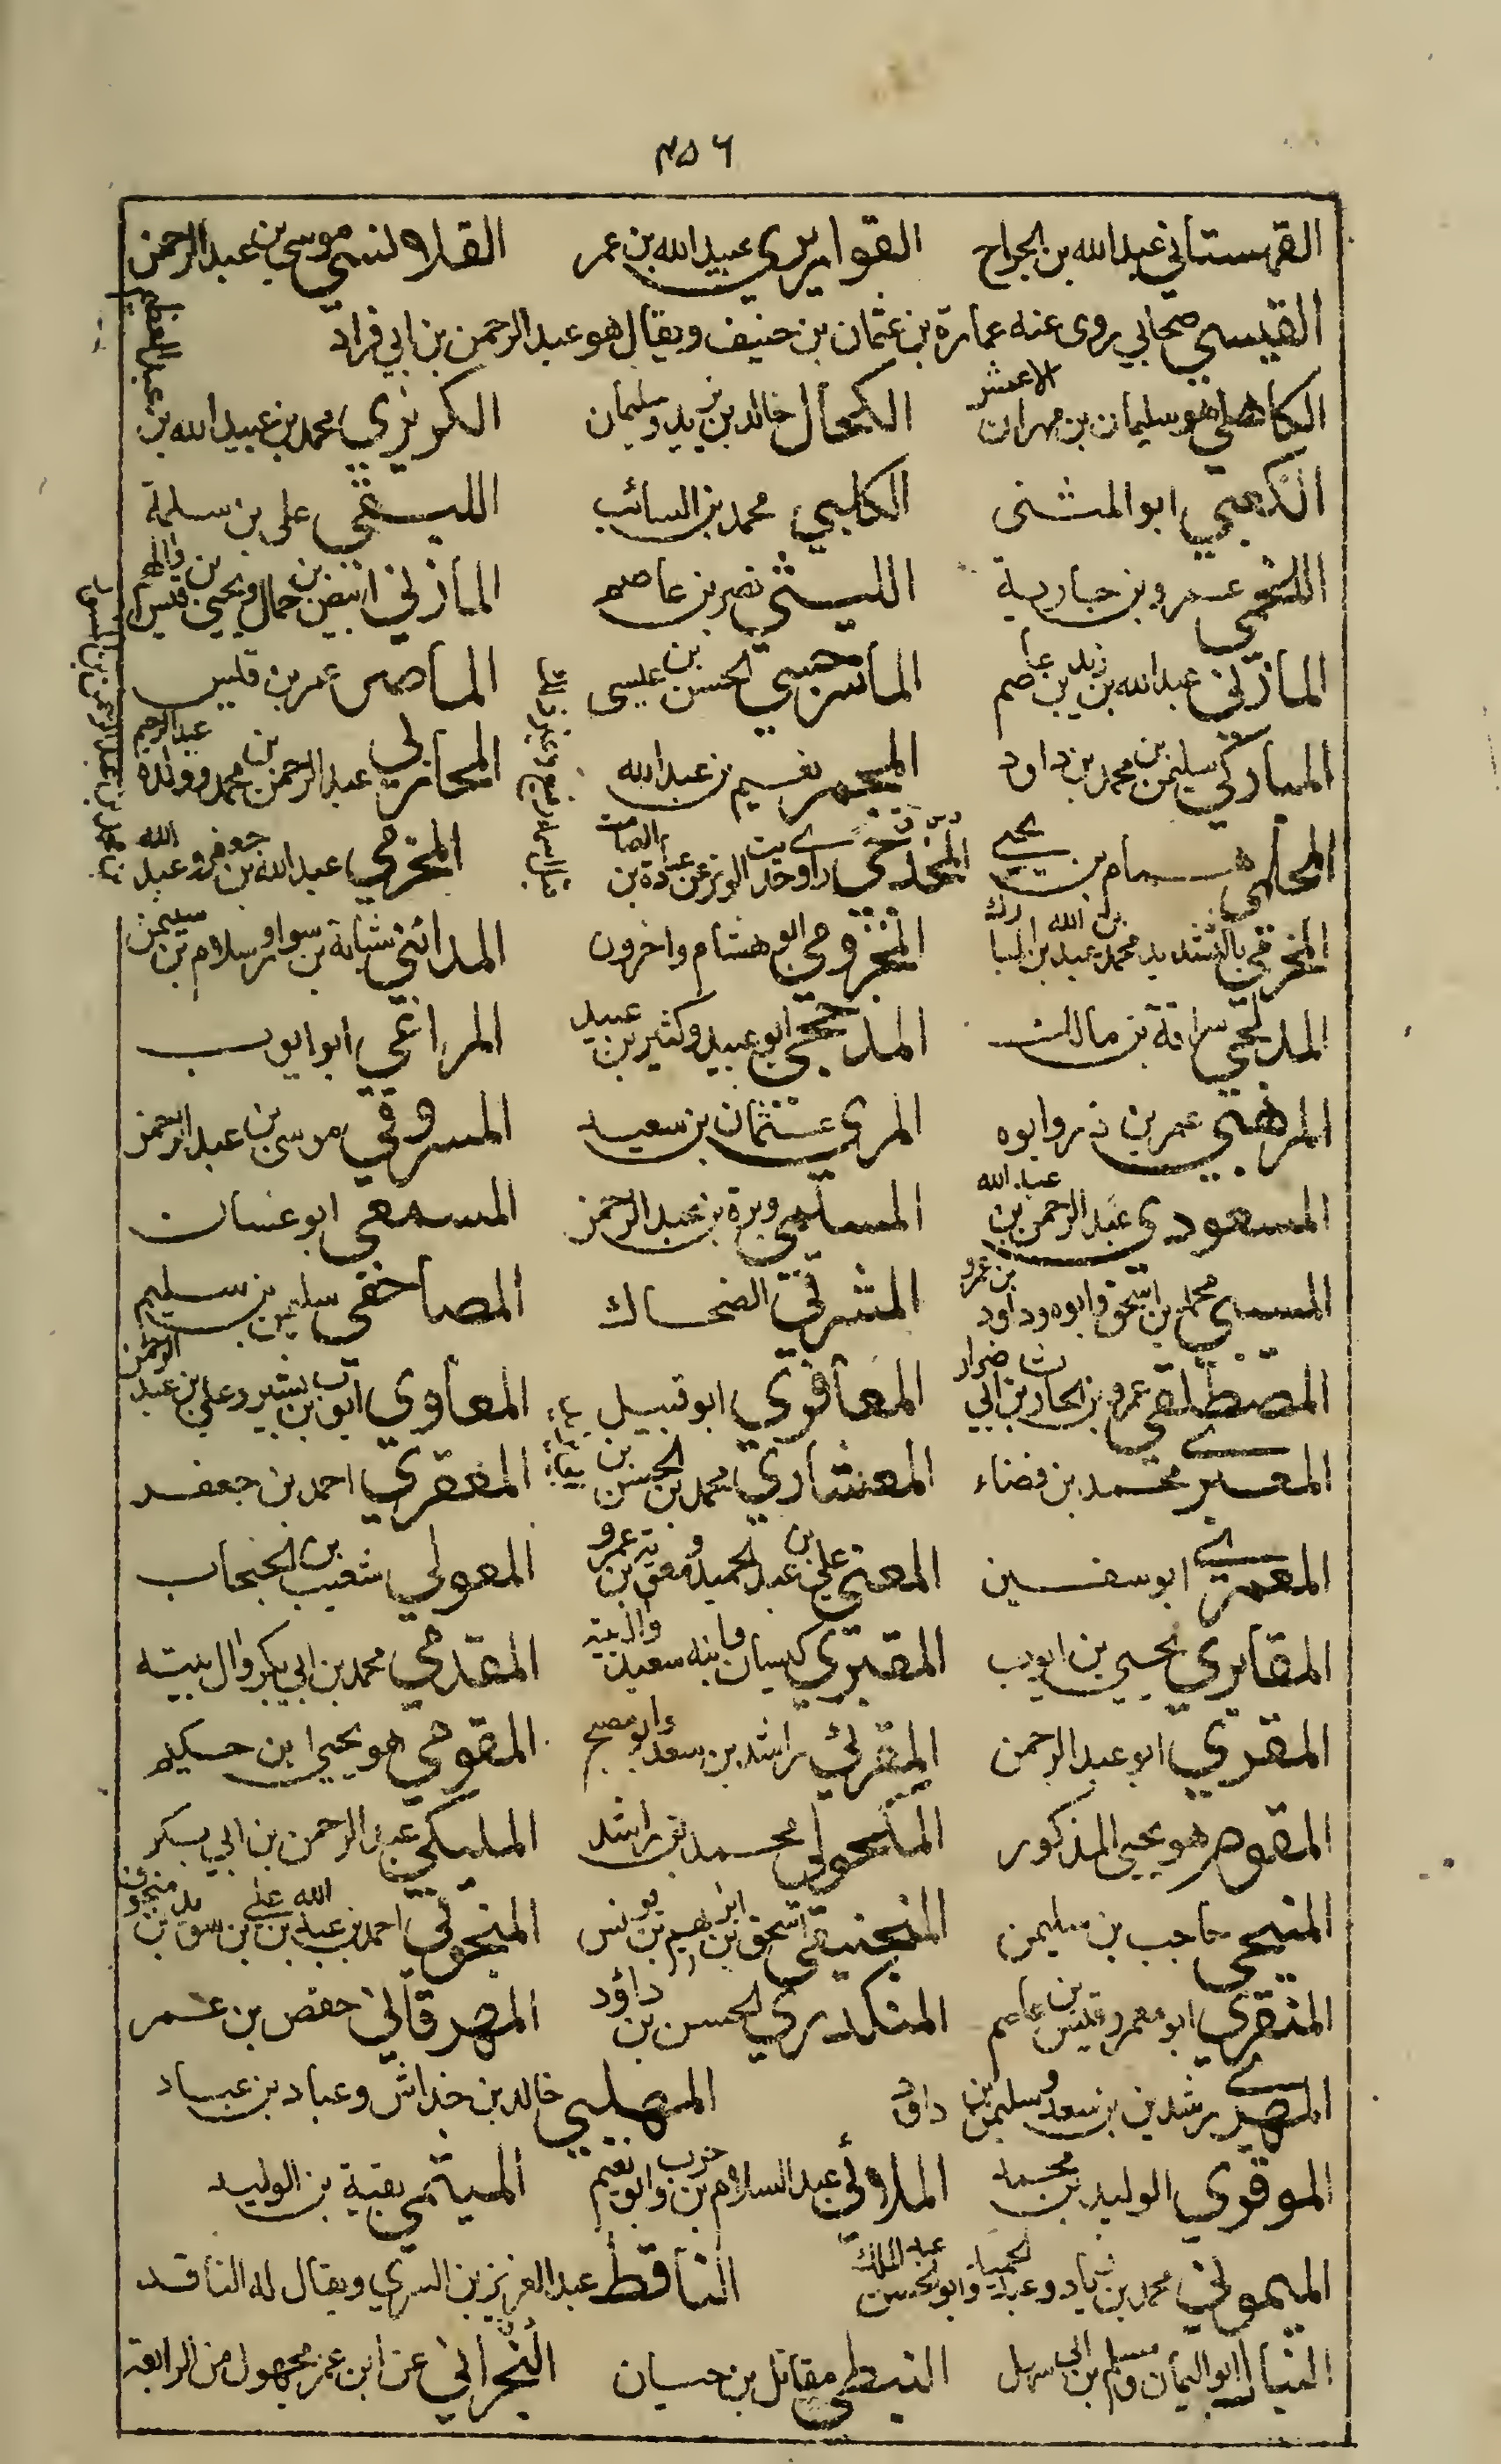 ۴۵۶
القهستاني عبد الله بن الجراح القواريري عبيد الله بن عمر القلانسي موسى بن عبد الرحمن
القيسي صحابي روى عنه عمارة بن عثمان بن حنيف ويقال هو عبد الرحمن بن ابي قراد
الكاهلي هو سليمان بن مهران الاعمش الكحال خالد بن يزيد وسليمان الكريزي محمد بن عبيد الله بن عبد العظيم
الكعبي ابو المثنى الكلبي محمد بن السائب اللبقي علي بن سلمة
اللخمي عمرو بن جارية الليثي نصر بن عاصم الماربي ابيض بن حمال ويحيى بن قيس
المازني عبد الله بن زيد بن عاصم الماسرجسي الحسن بن عيسى الماصر عمر بن قيس
المباركي سليمن بن محمد بن داود المجمر نعيم بن عبد الله المحاربي عبد الرحمن بن محمد وولده عبد الرحيم
المحلمي همام بن يحيى المخدجي عن عبادة بن الصامت المخرمي عبد الله بن جعفر وعبد الله
المخرمي بالتشديد محمد بن عبد الله بن المبارك المخزومي ابو هشام واخرون المدائني شبابة بن سوار وسلام بن سليمن
المدلجي سراقة بن مالك المذحجي ابو عبيد وكثير بن عبيد المراغي ابو ايوب
المرهبي عمر بن ذر وابوه المري عثمان بن سعيد المسروقي موسى بن عبد الرحمن
المسعودي عبد الرحمن بن عبد الله المسلي وبرة بن عبد الرحمن المسمعي ابو غسان
المسيبي محمد بن اسحق وابوه وداود بن عمرو المشرقي الضحاك المصاحفي سليمن بن سليم
المصطلقي عمرو بن الحارث بن ابي ضرار المعافري ابو قبيل المعاوي ايوب بن بشير وعلي بن عبد الرحمن
المعبر محمد بن فضاء المعشاري محمد بن الحسن المعقري احمد بن جعفر
المعمري ابو سفين المعني علي بن عبد الحميد ومعوية بن عمرو المعولي شعيب بن الحبحاب
المقابري يحيى بن ايوب المقبري كيسان وابنه سعيد وال بيته المقدمي محمد بن ابي بكر وال بيته
المقري ابو عبد الرحمن المقرئي راشد بن سعد وابو مصبح المقومي هو يحيى ابن حكيم
المقوم هو يحيى المذكور المكحولي محمد بن راشد المليكي عبد الرحمن بن ابي بكر
المنبجي حاجب بن سليمن المنجنيقي اسحق بن ابرهيم بن يونس المنجوفي احمد بن عبد الله بن علي بن سويد بن منجوف
المنقري ابو معمر وقيس بن عاصم المنكدري الحسن بن داؤد المهرقاني حفص بن عمر
المهري رشدين بن سعد وسليمن بن داود المهلبي خالد بن خداش وعباد بن عباد
الموقري الوليد بن محمد الملائي عبد السلام بن حرب وابو نعيم الميتمي بقية بن الوليد
الميموني محمد بن زياد وعبد الحميد وابو الحسن عبد الملك الناقط عبد العزيز بن السري ويقال له الناقد
النبال ابو اليمان ومسلم بن ابي سهل النبطي مقاتل بن حسان النجراني عن ابن عمر مجهول من الرابعة